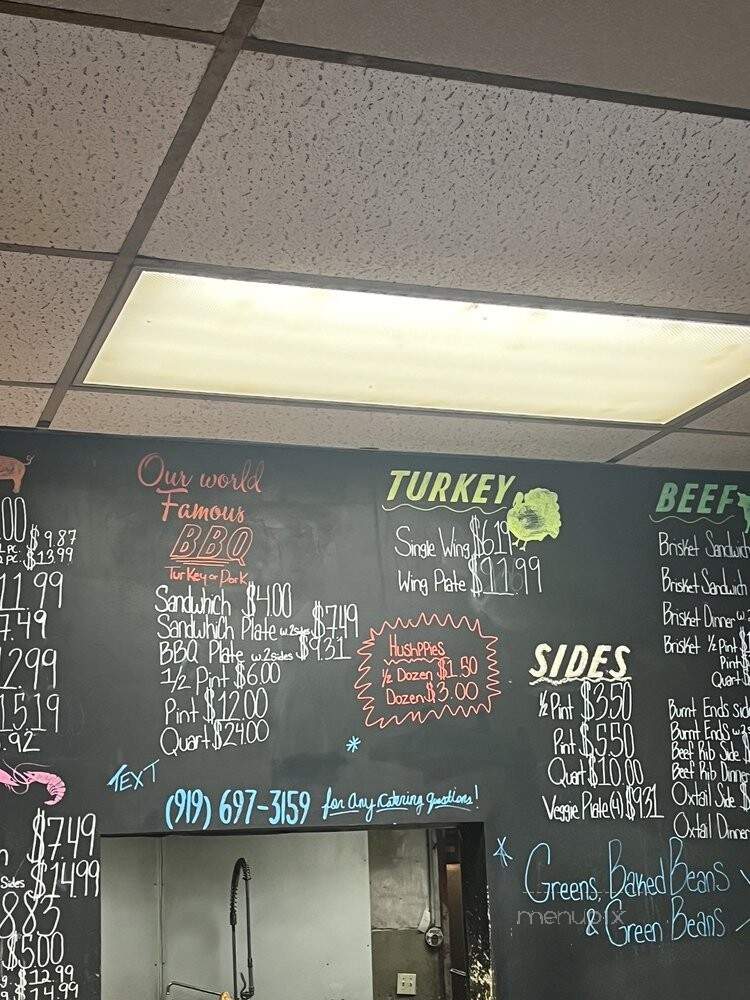 .00
$9.87
PC. $13.99
11.99
7.49
1299
15.19
.92
$7.49
Sides $14.99
883
$5.00
$12.99
$14.99
Our world
Famous
BBQ
Turkey or Pork
Sandwhich $4.00
Sandwhich Plate w.2sides $7.49
BBQ Plate w.2sides $9.31
1/2 Pint $6.00
Pint $12.00
Quart $24.00
TURKEY
Single Wing $6.19
Wing Plate
HushPPies
1/2 Dozen $1.50
Dozen $3.00
SIDES
1/2 Pint $3.50
Pint $5.50
Quart $10.00
Veggie Plate (4) $9.31
BEEF
Brisket Sandwich
Brisket Sandwich
Brisket Dinner w.2
Brisket 1/2 Pint $
Pint $
Quart $
Burnt Ends Side
Burnt Ends w.2s
Beef Rib Side $
Beef Rib Dinner
Oxtail Side $
Oxtail Dinner
TEXT
(919) 697-3159 for any catering questions!
* Greens, Baked Beans
& Green Beans
menupix